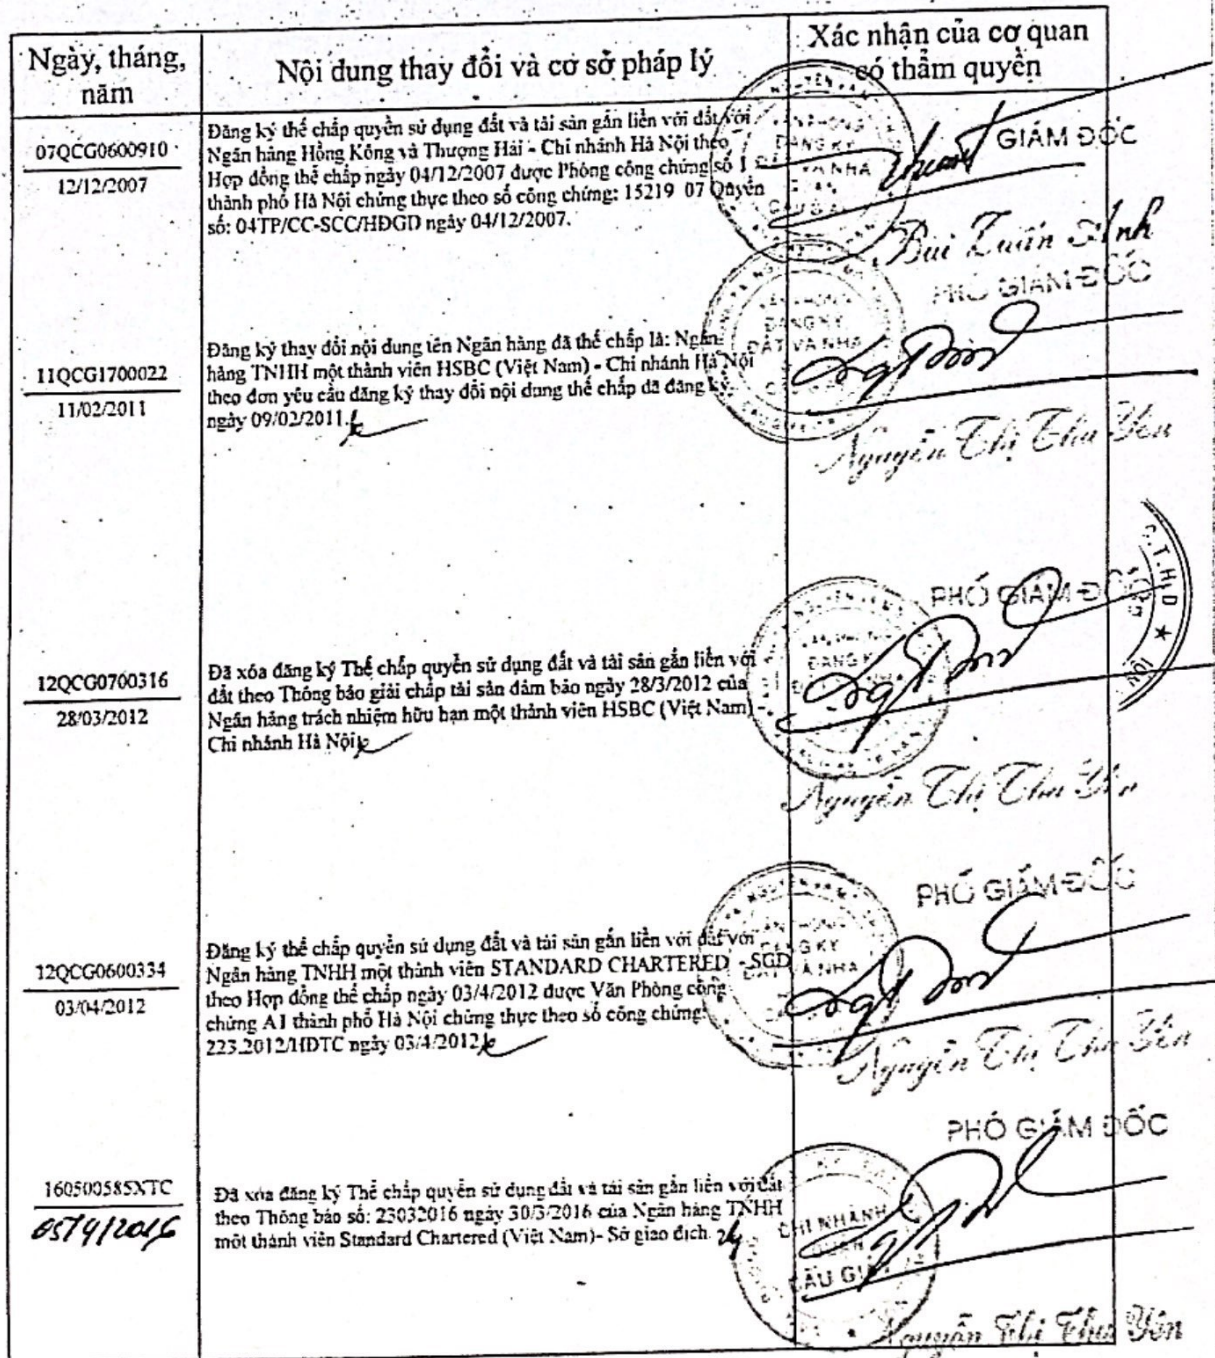 Ngày, tháng,
năm
Nội dung thay đổi và cơ sở pháp lý
Xác nhận của cơ quan
có thẩm quyền
07QCG0600910
12/12/2007
Đăng ký thế chấp quyền sử dụng đất và tài sản gắn liền với đất với
Ngân hàng Hồng Kông và Thượng Hải - Chi nhánh Hà Nội theo
Hợp đồng thế chấp ngày 04/12/2007 được Phòng công chứng số 1
thành phố Hà Nội chứng thực theo số công chứng: 15219 07 Quyển
số: 04TP/CC-SCC/HĐGD ngày 04/12/2007.
GIÁM ĐỐC
Bùi Tuấn Anh
11QCG1700022
11/02/2011
Đăng ký thay đổi nội dung tên Ngân hàng đã thế chấp là: Ngân
hàng TNHH một thành viên HSBC (Việt Nam) - Chi nhánh Hà Nội
theo đơn yêu cầu đăng ký thay đổi nội dung thế chấp đã đăng ký
ngày 09/02/2011.
PHÓ GIÁM ĐỐC
VĂN PHÒNG
ĐĂNG KÝ
ĐẤT VÀ NHÀ
Nguyễn Thị Thu Yên
12QCG0700316
28/03/2012
Đã xóa đăng ký Thế chấp quyền sử dụng đất và tài sản gắn liền với
đất theo Thông báo giải chấp tài sản đảm bảo ngày 28/3/2012 của
Ngân hàng trách nhiệm hữu hạn một thành viên HSBC (Việt Nam) -
Chi nhánh Hà Nội
PHÓ GIÁM ĐỐC
Nguyễn Thị Thu Yên
12QCG0600334
03/04/2012
Đăng ký thế chấp quyền sử dụng đất và tài sản gắn liền với đất với
Ngân hàng TNHH một thành viên STANDARD CHARTERED - SGD
theo Hợp đồng thế chấp ngày 03/4/2012 được Văn Phòng công
chứng A1 thành phố Hà Nội chứng thực theo số công chứng:
223.2012/HĐTC ngày 03/4/2012
PHÓ GIÁM ĐỐC
Nguyễn Thị Thu Yên
160500585XTC
05/4/2016
Đã xóa đăng ký Thế chấp quyền sử dụng đất và tài sản gắn liền với đất
theo Thông báo số: 23032016 ngày 30/3/2016 của Ngân hàng TNHH
một thành viên Standard Chartered (Việt Nam)- Sở giao dịch.
PHÓ GIÁM ĐỐC
CHI NHÁNH
QUẬN
CẦU GIẤY
Nguyễn Thị Thu Yên